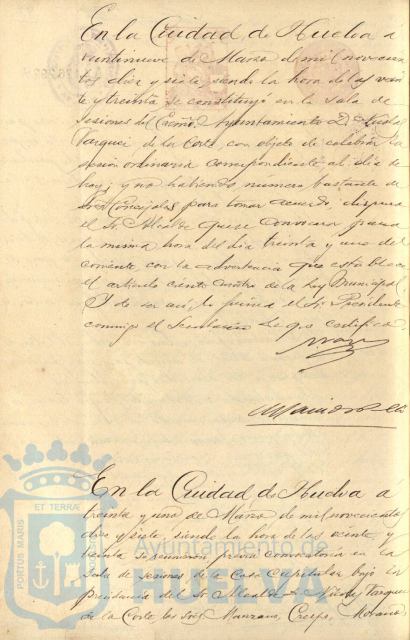 En la Ciudad de Huelva a
veintinueve de Marzo de mil novecien
tos diez y siete, siendo la hora de las vein
te y treinta se constituyó en la sala de
Sesiones del Excmo. Ayuntamiento D. Nicolás
Vazquez de la Corte, con objeto de celebrar la
sesión ordinaria correspondiente al día de
hoy, y no habiendo número bastante de
Sres. Concejales para tomar acuerdo, dispuso
el Sr. Alcalde que se convocara para
la misma hora del día treinta y uno del
corriente, con la advertencia que establece
el artículo ciento cuatro de la ley Municipal
Y de ser así, lo firma el Sr. Presidente
conmigo el Secretario de que certifico.
En la Ciudad de Huelva á
treinta y uno de Marzo de mil novecientos
diez y siete, siendo la hora de las veinte y
treinta se reunieron previa convocatoria en la
Sala de sesiones de la Casa Capitular bajo la
presidencia del Sr. Alcalde D. Nicolás Vazquez
de la Corte los Sres. Manzano, Crespo, Moreno
ET TERRÆ
PORTUS MARIS
Ayuntamiento de
HUELVA